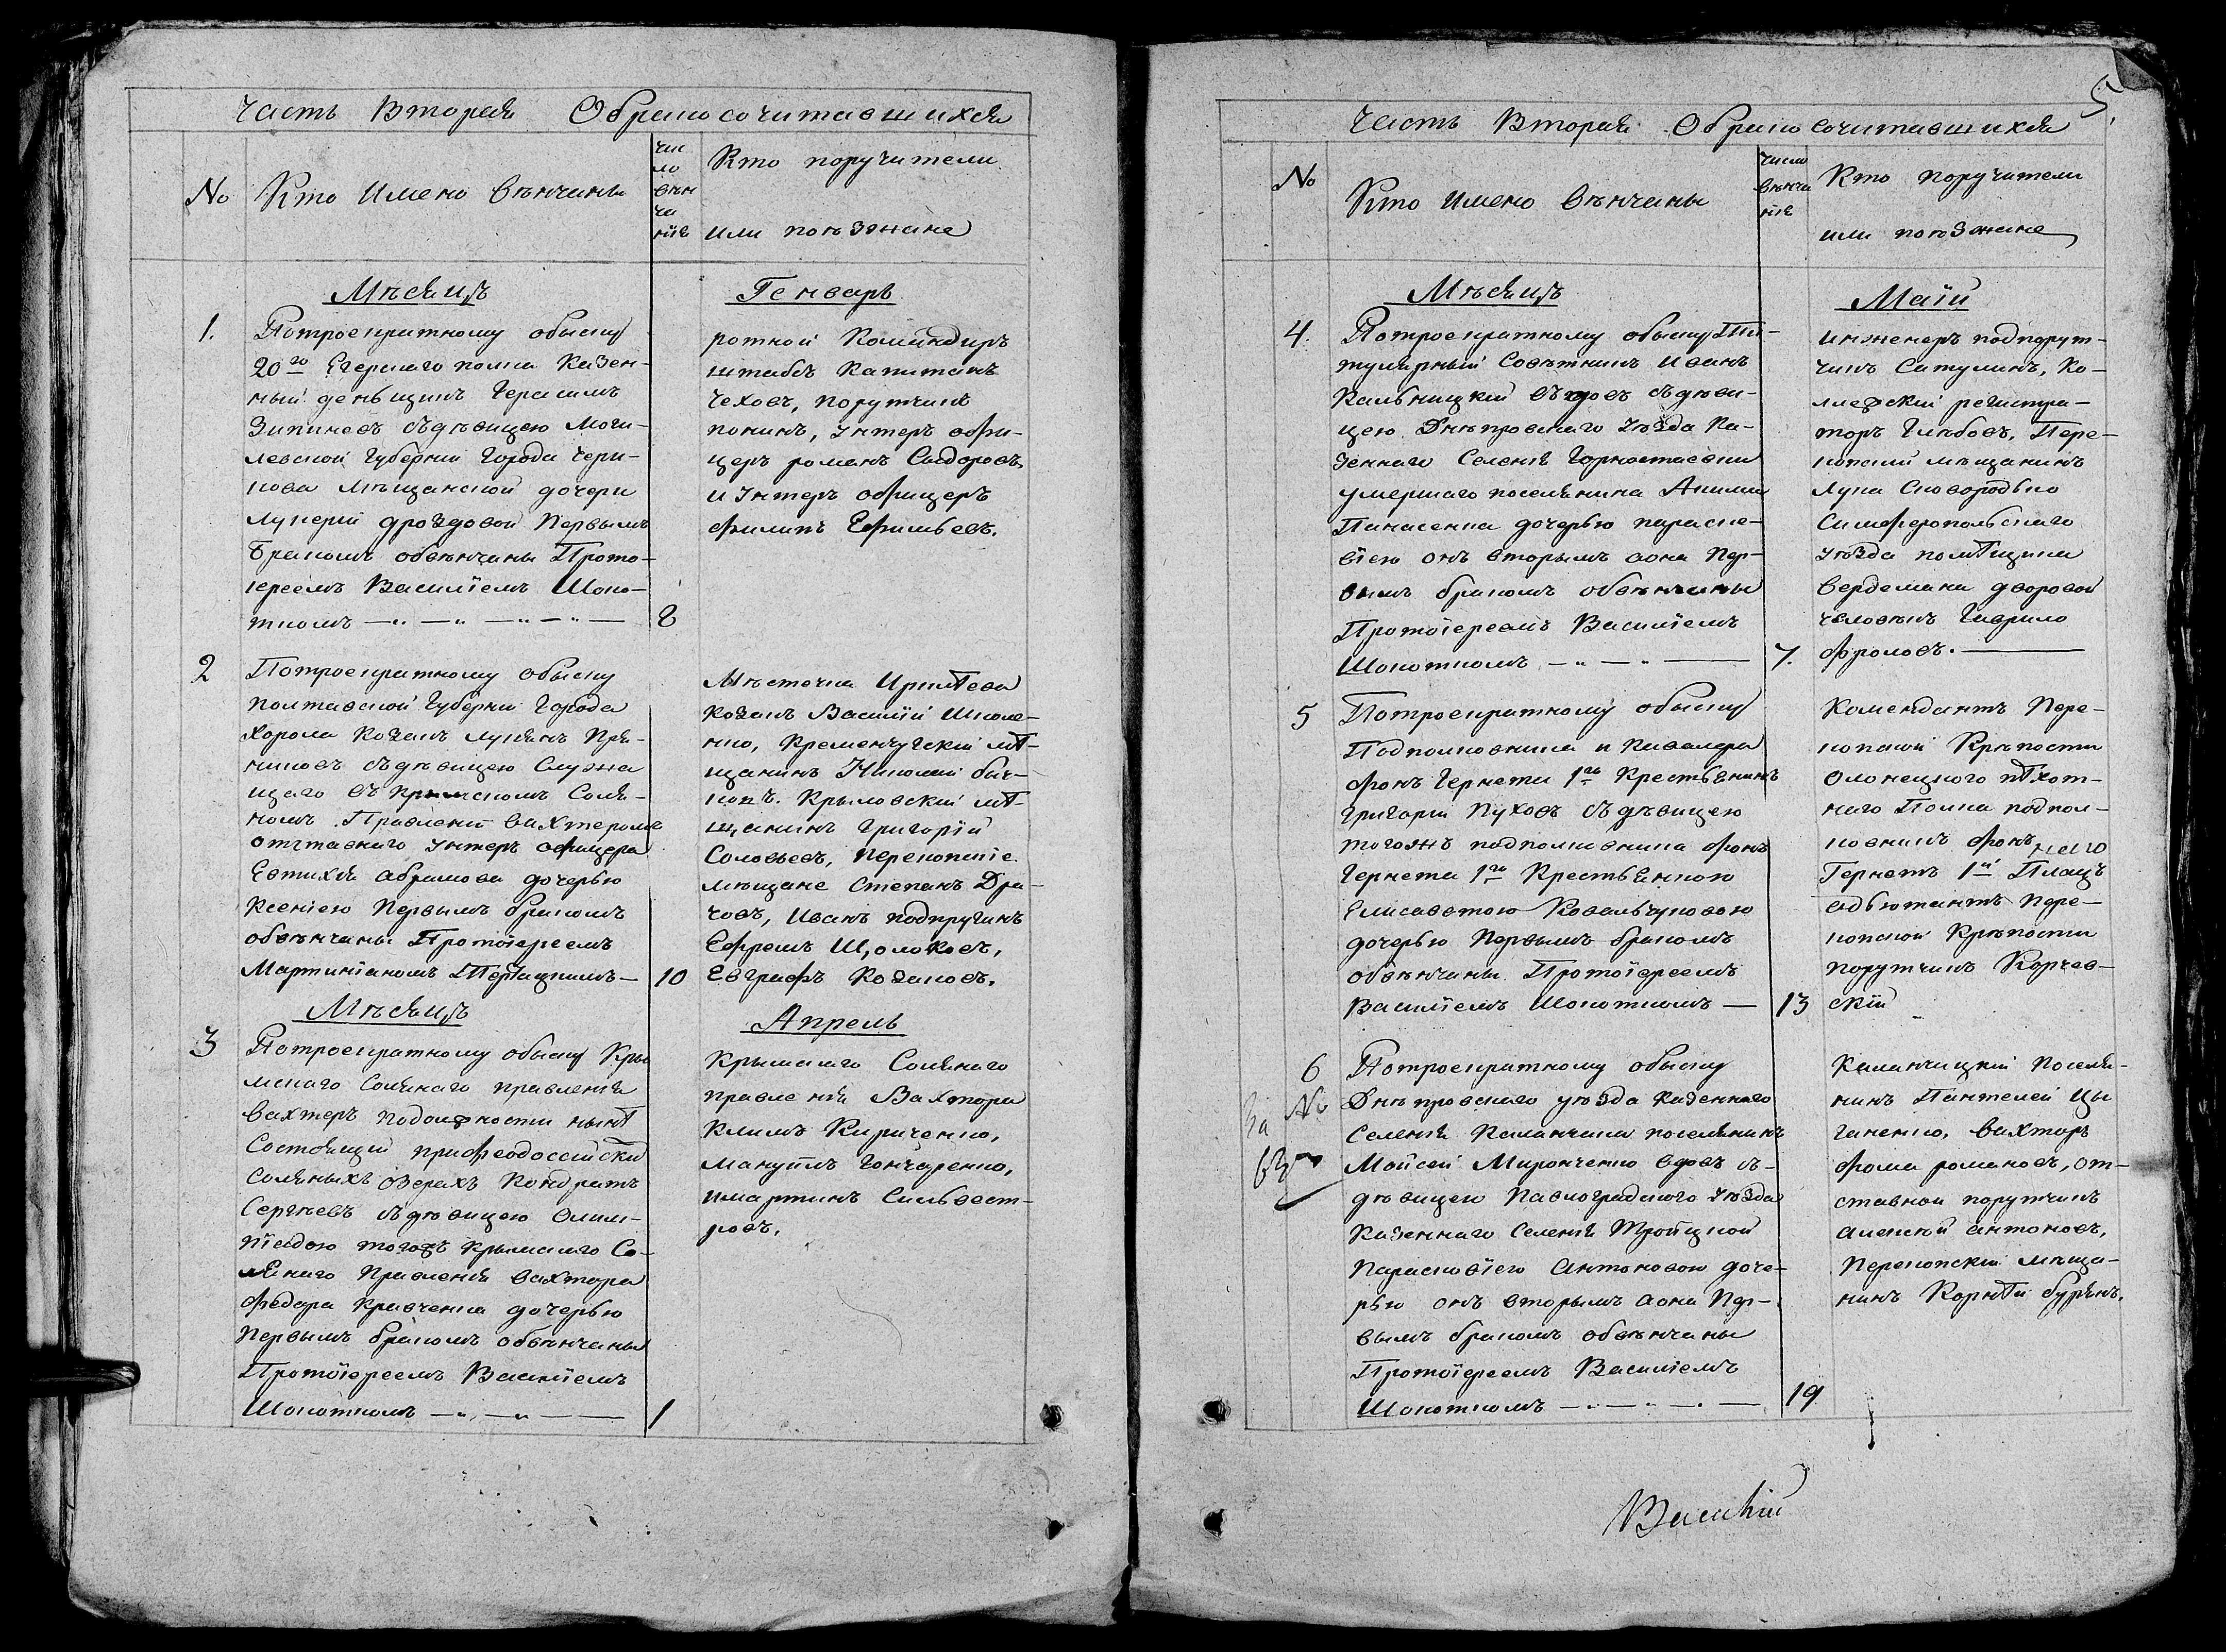 Часть Вторая О бракосочитавшихся
№
Кто Имено Вѣнчаны
чис
ло
вѣн
ча
нія
Кто поручители
или поѣзжане
Мѣсяцъ
Генварь
1.
Потроекратному обыску
20го Егерскаго полка Казен-
ный деньщикъ Герасимъ
Зипиневъ съдѣвицею Моги-
левской Губерніи Города Чери-
кова Мѣщанской дочери
Лукеріи дроздовой Первымъ
бракомъ обвѣнчаны Прото-
іереемъ Василіемъ Шоко-
ткомъ
8
ротной Командиръ
штабсъ Капитанъ
Чеховъ, Порутчикъ
понинъ, унтеръ офи-
церъ романъ Сыдоровъ
и унтеръ офицеръ
филипъ Ефильевъ.
2
Потроекратному обыску
полтавской Губерніи Города
Хорола Козакъ лукьянъ Пря-
никовъ съдѣвицею Служа
щаго въ Крымскомъ Соля-
номъ Правленіи вахтеромъ
отставнаго унтеръ офицера
Евтихія абрамова дочерью
Ксеніею Первымъ бракомъ
обвѣнчаны Протоіереемъ
Мартиніаномъ
10
Мѣстечка Ирклѣева
Козакъ Василій Школе-
нко, Кременчугскій мѣ-
щанинъ Николай
Крыловскій мѣ-
щанинъ Григорій
Соловьевъ, Перекопскіе
мѣщане Степанъ Дра-
човъ, Иванъ подпругинъ
Ефремъ Щолоковъ,
Евграфъ Козаковъ.
Мѣсяцъ
Апрель
3
Потроекратному обыску Кры
мскаго Солянаго правленія
вахтеръ подолжности нынѣ
Состоящій прифеодоссійски
Соляныхъ озерахъ Кондратъ
Сергѣевъ съдѣвицею Олим-
піадою тогожъ Крымскаго Со-
лянаго Правленія вахтера
федора Кравченка дочерью
Первымъ бракомъ обвѣнчаны
Протоіереемъ Василіемъ
Шокоткомъ
1
Крымскаго Солянаго
правленія Вахтера
Климъ Кириченко,
Мануилъ Гончаренко,
имартинъ Сильвест-
ровъ.
5.
Часть Вторая О бракосочитавшихся
№
Кто Имено Вѣнчаны
число
вѣнча
нія
Кто поручители
или поѣзжане
Мѣсяцъ
Маій
4.
Потроекратному обыску Ти-
тулярный Совѣтникъ Иванъ
Кальницкій вдовъ съдѣви-
цею Днѣпровскаго уѣзда Ка-
зеннаго Селенія Горностаевки
умершаго поселянина Акима
Панасенка дочерью параске-
віею онъ вторымъ аона Пер-
вымъ бракомъ обвѣнчаны
Протоіереемъ Василіемъ
Шокоткомъ
7.
инженеръ подпорут-
чикъ Сатулинъ, Ко-
лежскій регистра-
торъ Глѣбовъ, Пере-
копскій мѣщанинъ
Лука Сковородько
Симферопольскаго
уѣзда помѣщика
Вердемана дворовой
человѣкъ Гаврило
фроловъ.
5
Потроекратному обыску
Подполковника и Кавалера
фонъ Гернета 1го Крестьянинъ
Григорій Пуховъ съдѣвицею
тогожъ подполковника фонъ
Гернета 1го Крестьянкою
Елисаветою Ковальчуковою
дочерью Первымъ бракомъ
обвѣнчаны Протоіереемъ
Василіемъ Шокоткомъ
13
Комендантъ Пере-
копской Крѣпости
Олонецкого пѣхот-
наго Полка подпол-
ковникъ фонъ
Гернетъ 1й Плацъ
адьютантъ Пере-
копской Крѣпости
порутчикъ Корчев-
скій
6
За №
63
Потроекратному обыску
Днѣпровскаго уѣзда Казеннаго
Селенія Каланчака поселянинъ
Мойсей Миронченко вдовъ съ-
дѣвицею Павлоградского уѣзда
Казеннаго Селенія Тройцкой
Параскевіею Антоновою доче-
рью онъ вторымъ аона Пер-
вымъ бракомъ обвѣнчаны
Протоіереемъ Василіемъ
Шокоткомъ
19
Каланчицкій Поселя-
нинъ Пантелей Цы
ганенко, вахтеръ
фома романовъ, от-
ставной порутчикъ
алексѣй антоновъ,
Перекопскій мѣща-
нинъ Корнѣй бурянъ.
Василій